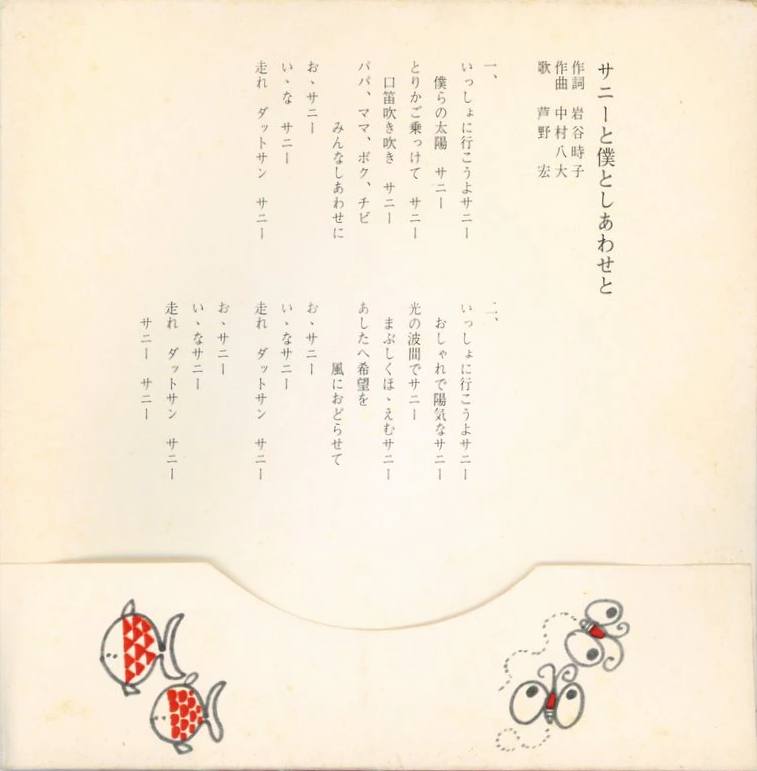 サニーと僕としあわせと
作詞 岩谷時子
作曲 中村八大
歌 芦野 宏
一、
いっしょに行こうよサニー
僕らの太陽 サニー
とりかご乗っけて サニー
口笛吹き吹き サニー
パパ、ママ、ボク、チビ
みんなしあわせに
おゝサニー
いゝな サニー
走れ ダットサン サニー
二、
いっしょに行こうよサニー
おしゃれで陽気なサニー
光の波間でサニー
まぶしくほゝえむサニー
あしたへ希望を
風におどらせて
おゝサニー
いゝなサニー
走れ ダットサン サニー
おゝサニー
いゝなサニー
走れ ダットサン サニー
サニー サニー